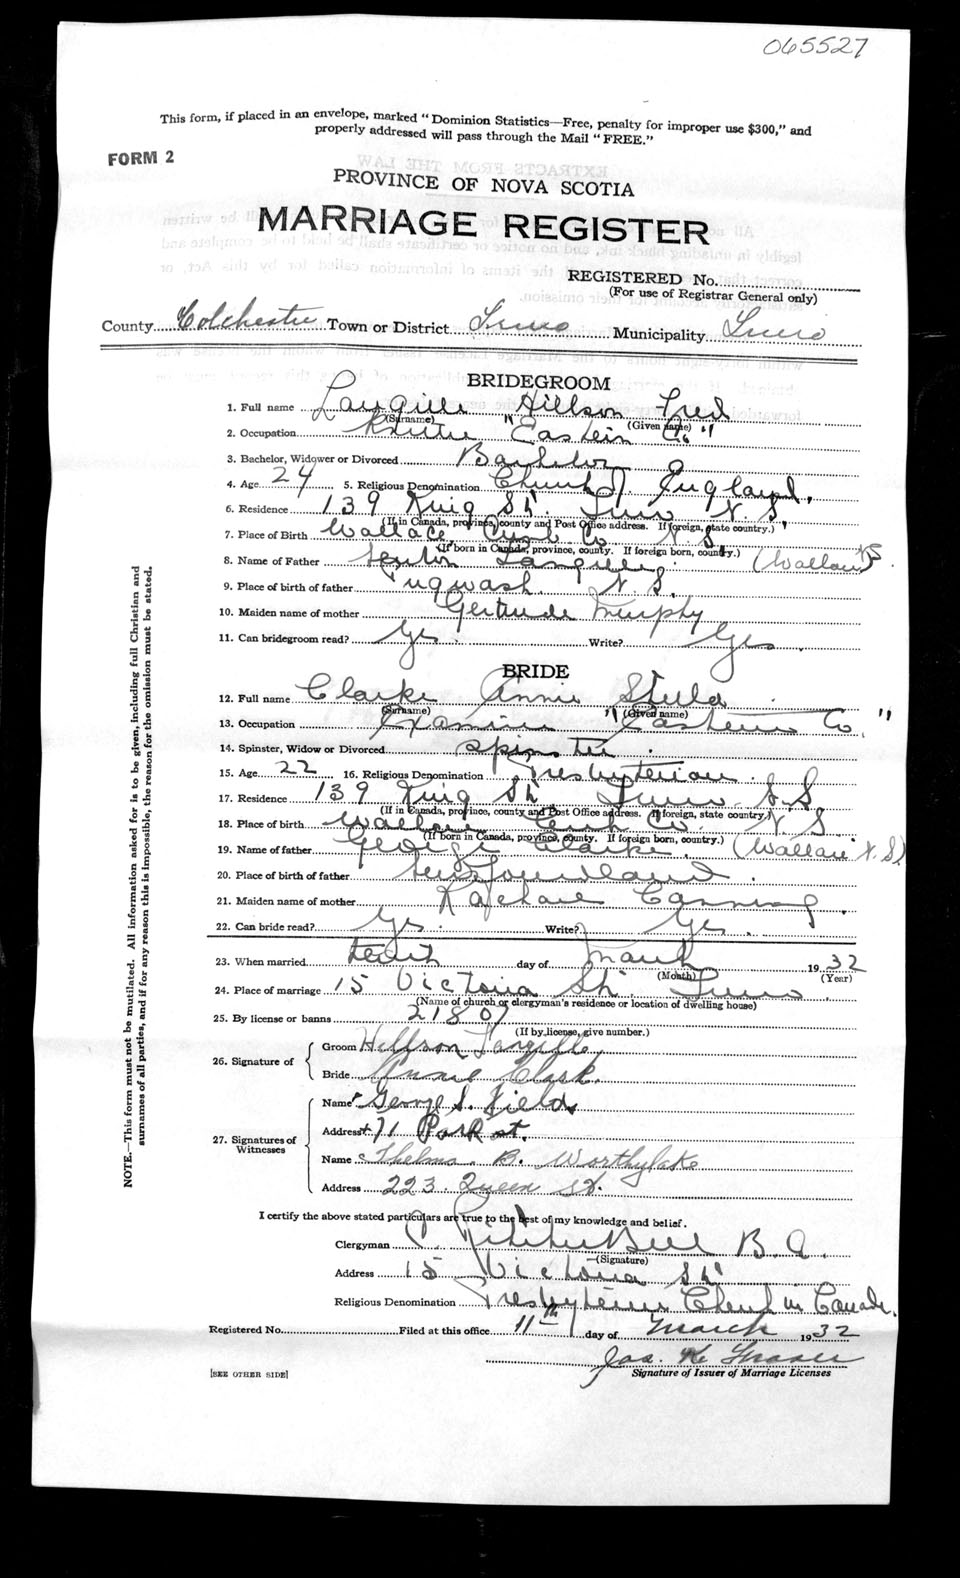 065527
This form, if placed in an envelope, marked "Dominion Statistics—Free, penalty for improper use $300," and
properly addressed will pass through the Mail "FREE."
FORM 2
PROVINCE OF NOVA SCOTIA
MARRIAGE REGISTER
REGISTERED No.
(For use of Registrar General only)
County Colchester Town or District Truro Municipality Truro
BRIDEGROOM
1. Full name Langille Hillson Fred
(Surname) (Given name)
2. Occupation Knitter "Eastern Co"
3. Bachelor, Widower or Divorced Bachelor
4. Age 24 5. Religious Denomination Church of England.
6. Residence 139 King St. Truro N. S
(If in Canada, province, county and Post Office address. If foreign, state country.)
7. Place of Birth Wallace Cumb Co N. S.
(If born in Canada, province, county. If foreign born, country.)
8. Name of Father Langille (Wallace NS
9. Place of birth of father Pugwash N. S.
10. Maiden name of mother Gertrude Murphy
11. Can bridegroom read? Yes. Write? Yes.
BRIDE
12. Full name Clarke Annie Stella
(Surname) (Given name)
13. Occupation Examiner "Eastern Co."
14. Spinster, Widow or Divorced Spinster.
15. Age 22 16. Religious Denomination Presbyterian.
17. Residence 139 King St Truro N.S
(If in Canada, province, county and Post Office address. If foreign, state country.)
18. Place of birth Wallace Cumb Co. N S
(If born in Canada, province, county. If foreign born, country.)
19. Name of father George Clarke. (Wallace N. S)
20. Place of birth of father Newfoundland.
21. Maiden name of mother Canning.
22. Can bride read? Yes. Write? Yes.
23. When married tenth day of March 1932
(Month) (Year)
24. Place of marriage 15 Victoria St. Truro.
(Name of church or clergyman's residence or location of dwelling house)
25. By license or banns 21807
(If by license, give number.)
26. Signature of
Groom Hillson Langille
Bride Annie Clark.
27. Signatures of Witnesses
Name George S. Fields
Address 71 Park st.
Name Thelma B. Worthylake
Address 223 Queen St.
I certify the above stated particulars are true to the best of my knowledge and belief.
Clergyman Bell B. A.
(Signature)
Address 15 Victoria St
Religious Denomination Presbyterian Church in Canada.
Registered No. Filed at this office 11th day of March 1932
Jas. K Fraser
Signature of Issuer of Marriage Licenses
[SEE OTHER SIDE]
NOTE.—This form must not be mutilated. All information asked for is to be given, including full Christian and
surnames of all parties, and if for any reason this is impossible, the reason for the omission must be stated.